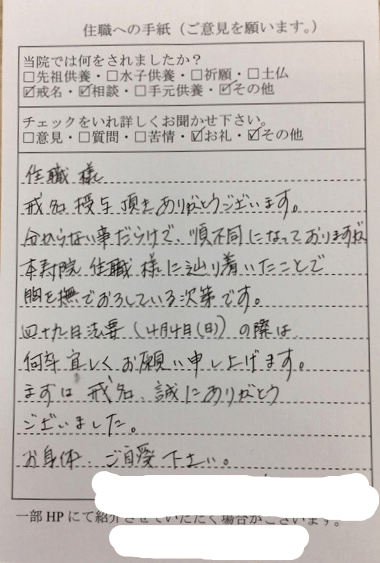 住職への手紙（ご意見を願います。）
当院では何をされましたか？
□先祖供養・□水子供養・□祈願・□土仏
☑戒名・☑相談・□手元供養・☑その他
チェックをいれ詳しくお聞かせ下さい。
□意見・□質問・□苦情・☑お礼・☑その他
住職様
戒名授与頂きありがとうございます。
分からない事だらけで、順不同になっておりますが
本寿院 住職様に辿り着いたことで
胸を撫でおろしている次第です。
四十九日法要（4月4日(日)）の際は
何卒宜しくお願い申し上げます。
まずは戒名、誠にありがとう
ございました。
お身体、ご自愛下さい。
一部HPにて紹介させていただく場合がございます。